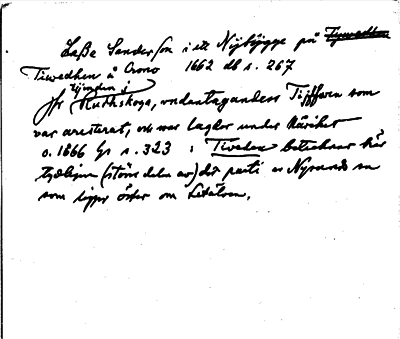 Laße Sanderson i ett Nybygge på Tywedhen
Tiwedhen å Crono 1662 db s. 267
Tijveden i
Jfr Ruthskoga, undantagandess Tifferen som
var aresterat, och war lagder under Näriket
o. 1666 Gr s. 323 : Tiveden betecknar här
tydligen (större delen av) det parti av Nysunds sn
som ligger öster om Letälven.